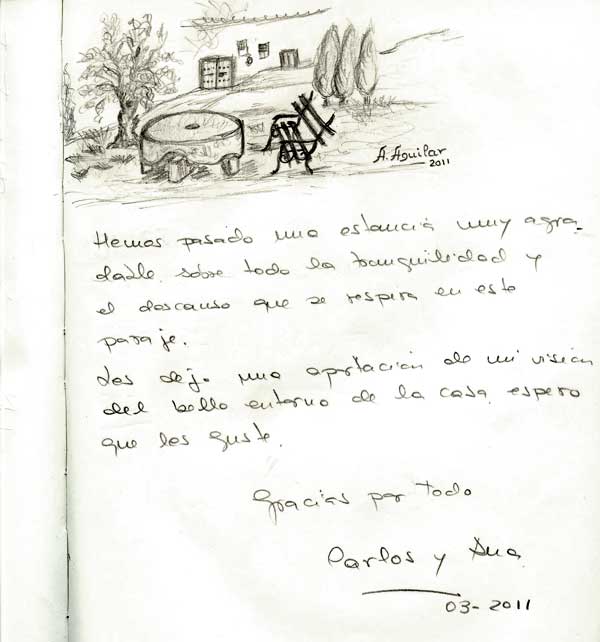 A. Aguilar
2011
Hemos pasado una estancia muy agra-
dable sobre todo la tranquilidad y
el descanso que se respira en este
paraje.
Les dejo una aportación de mi visión
del bello entorno de la casa, espero
que les guste.
Gracias por todo
Carlos y Ana
03-2011